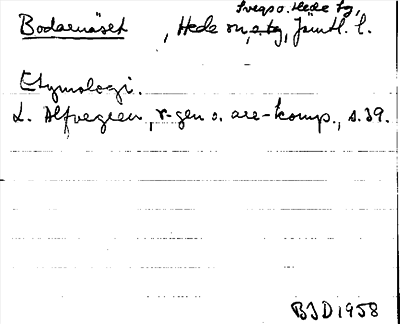 Svegs o. Hede tg,
Bodarnäset, Hede sn, o. tg, Jämtl. l.
Etymologi.
L. Alfvegren, r-gen o. are-komp., s. 39.
BJD 1958